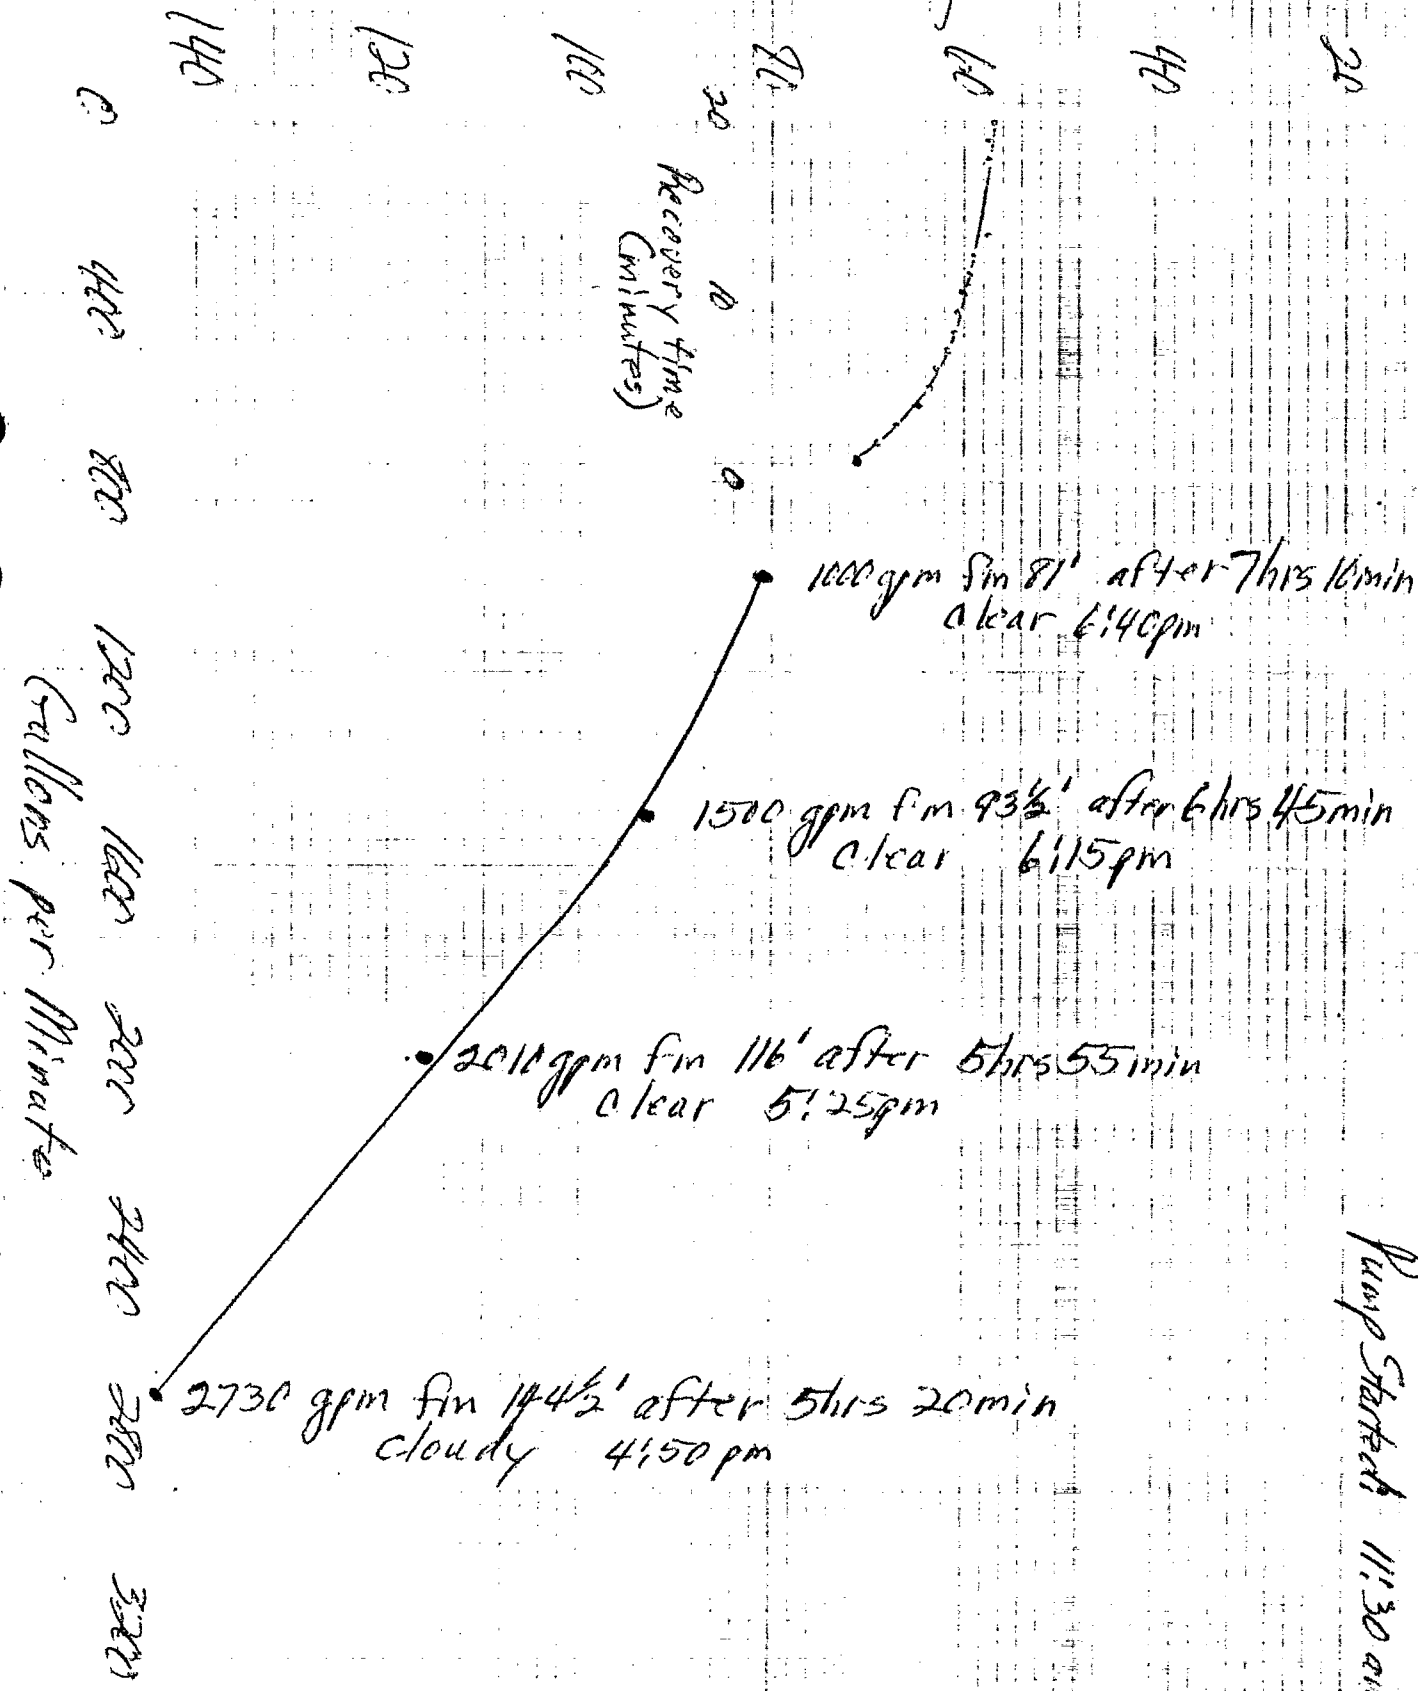 140
120
100
80
60
40
20
20
10
0
Recovery time
(minutes)
1000 gpm fm 81' after 7hrs 10min
Clear 6:40pm
1500 gpm fm 93½' after 6hrs 45min
Clear 6:15pm
2010 gpm fm 116' after 5hrs 55min
Clear 5:25pm
2730 gpm fm 144½' after 5hrs 20min
Cloudy 4:50 pm
0
400
800
1200
1600
2000
2400
2800
3200
Gallons per Minute
Pump Started: 11:30 am